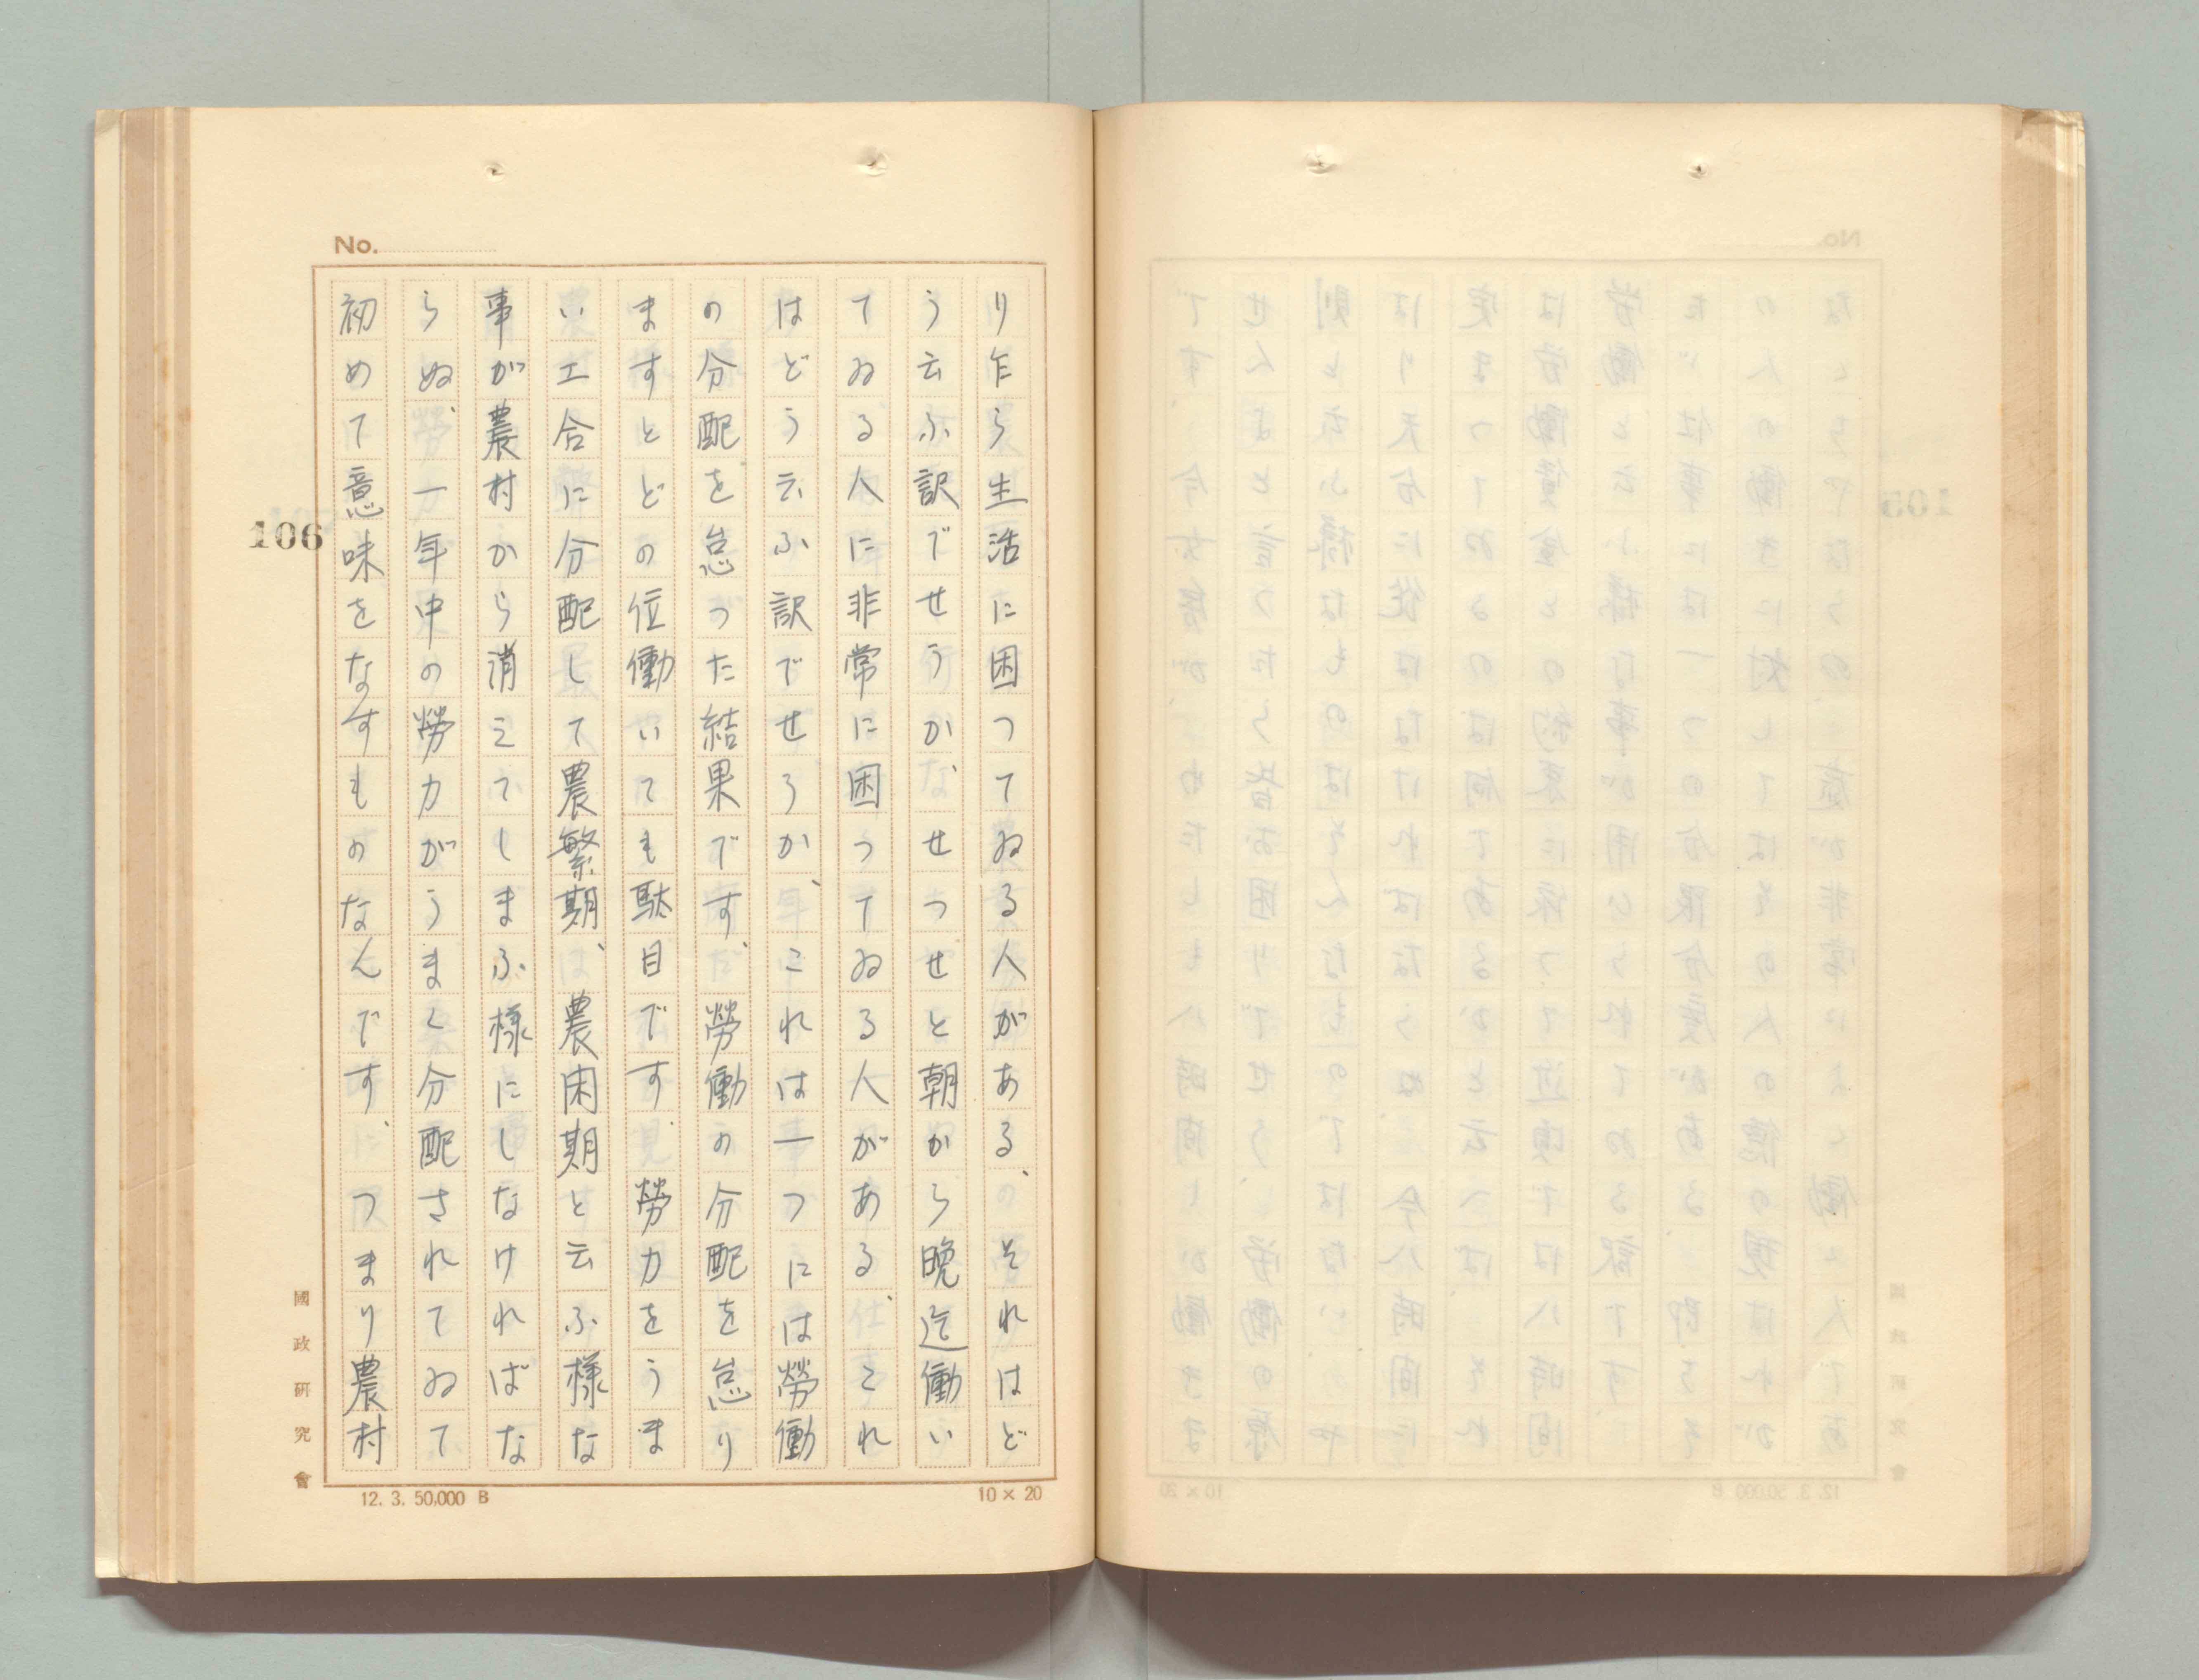 No.
り乍ら生活に困つてゐる人がある、それはど
う云ふ訳でせうか、せつせと朝から晩迄働い
てゐる人に非常に困つてゐる人がある、これ
はどう云ふ訳でせうか、これは一つには勞働
の分配を怠つた結果です、勞働の分配を怠り
ますとどの位働いても駄目です、勞力をうま
い工合に分配して農繁期、農困期と云ふ様な
事が農村から消えてしまふ様にしなければな
らぬ、一年中の勞力がうまく分配されてゐて
初めて意味をなすものなんです、つまり農村
106
國政研究會
12. 3. 50,000 B
10 × 20